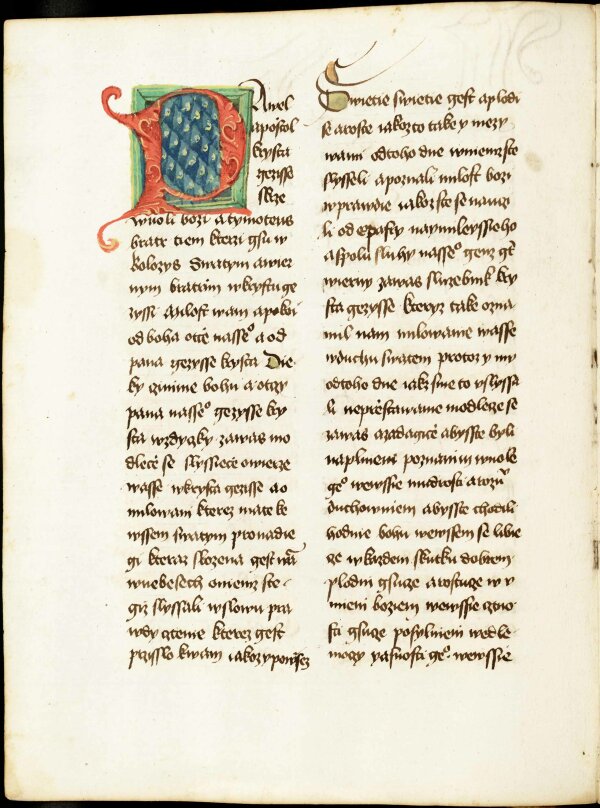 Pawel
apostol
krysta
gezisse
skrze
wuoli bozi a tymoteus
bratr tiem kterzi gsu w
kolozys Swatym awier
nym bratrom wkrystu ge
zyssi Milost wam apokoi
od boha otce nasseº a od
pana gezysse krysta Die
ky czinime bohu a otczy
pana nasseº gezysse kry
sta wzdyczky zawas mo
dlece se slyssiece owierze
wasse wkrysta gezisse a o
milowani kterez mate ke
wssem swatym pro nadie
gi kteraz slozena gest wā
wnebesech o niemz ste
giz slyssali wslowu pra
wdy cztenie kterez gest
przisslo kwam iakozy powssez
Swietie swietie gest a plodi
se aroste iakozto take y mezy
wami odtoho dne wniemzste
slysseli a poznali milost bozi
wprawdie iakozste se nauczi
li od epafry naymileyssieho
aspolu sluhy nasseº genz gt
wierny zawas sluzebnik kry
sta gezysse kteryz take ozna
mil nam milowanie wasse
wduchu swatem protoz y my
odtoho dne iakz sme to vslyssa
li neprzestawame modlecze se
zawas azadagice abysste byli
naplnieni poznanim wuole
geº wewssie mudrosti arozū
duchowniem abysste chodili
hodnie bohu wewssem se libie
ce wkazdem skutku dobrem
plodni gsuce arostuce w v
mieni boziem wewssie czno
sti gsuce posylnieni wedle
moczy yasnosti geº wewssie